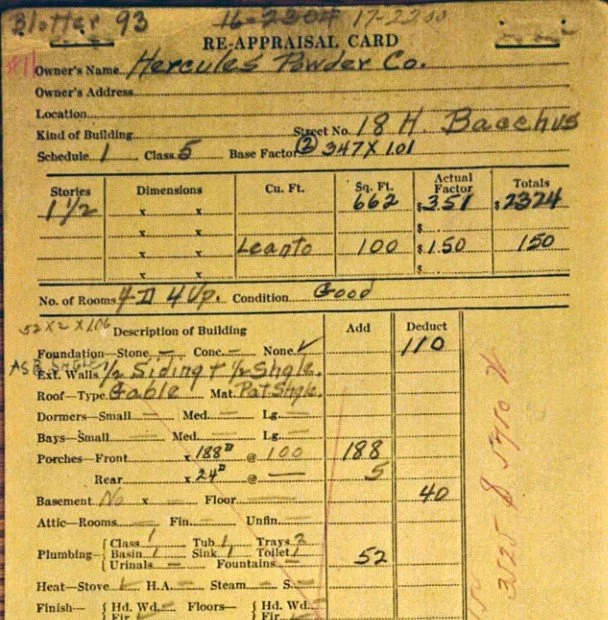 Blotter 93 16-2304 17-2200
RE-APPRAISAL CARD
#11
Owner's Name Hercules Powder Co.
Owner's Address
Location
Kind of Building Street No. 18 H. Bacchus
Schedule 1 Class 5 Base Factor ② 347 X 1.01
Stories Dimensions Cu. Ft. Sq. Ft. Actual Factor Totals
1 1/2 x x 662 $3.51 $2324
x x $
x x Leanto 100 $1.50 150
x x $
No. of Rooms 4 D 4 Up. Condition Good
52 X 2 X 1.06
Description of Building Add Deduct
Foundation—Stone Conc. None ✓ 110
ASB. SHGLE
Ext. Walls 1/2 Siding + 1/2 Shgle.
Roof—Type Gable Mat. Pat Shgle.
Dormers—Small Med. Lg.
Bays—Small Med. Lg.
Porches—Front x 188 @ 1.00 188
Rear x 24 @ 5
Basement No x Floor 40
Attic—Rooms Fin. Unfin.
Plumbing— Class 1 Tub 1 Trays 2
Basin 1 Sink 1 Toilet 1 52
Urinals Fountains
Heat—Stove ✓ H.A. Steam S.
Finish— Hd. Wd. Floors— Hd. Wd.
Fir Fir